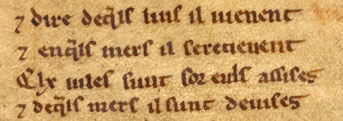 ⁊ dire deq̃ls luis il uienent
⁊ enq̃ls mers il seretieuent
Elx uiles sunt sor euls assises
⁊ deq̃ls mers il sunt deuises